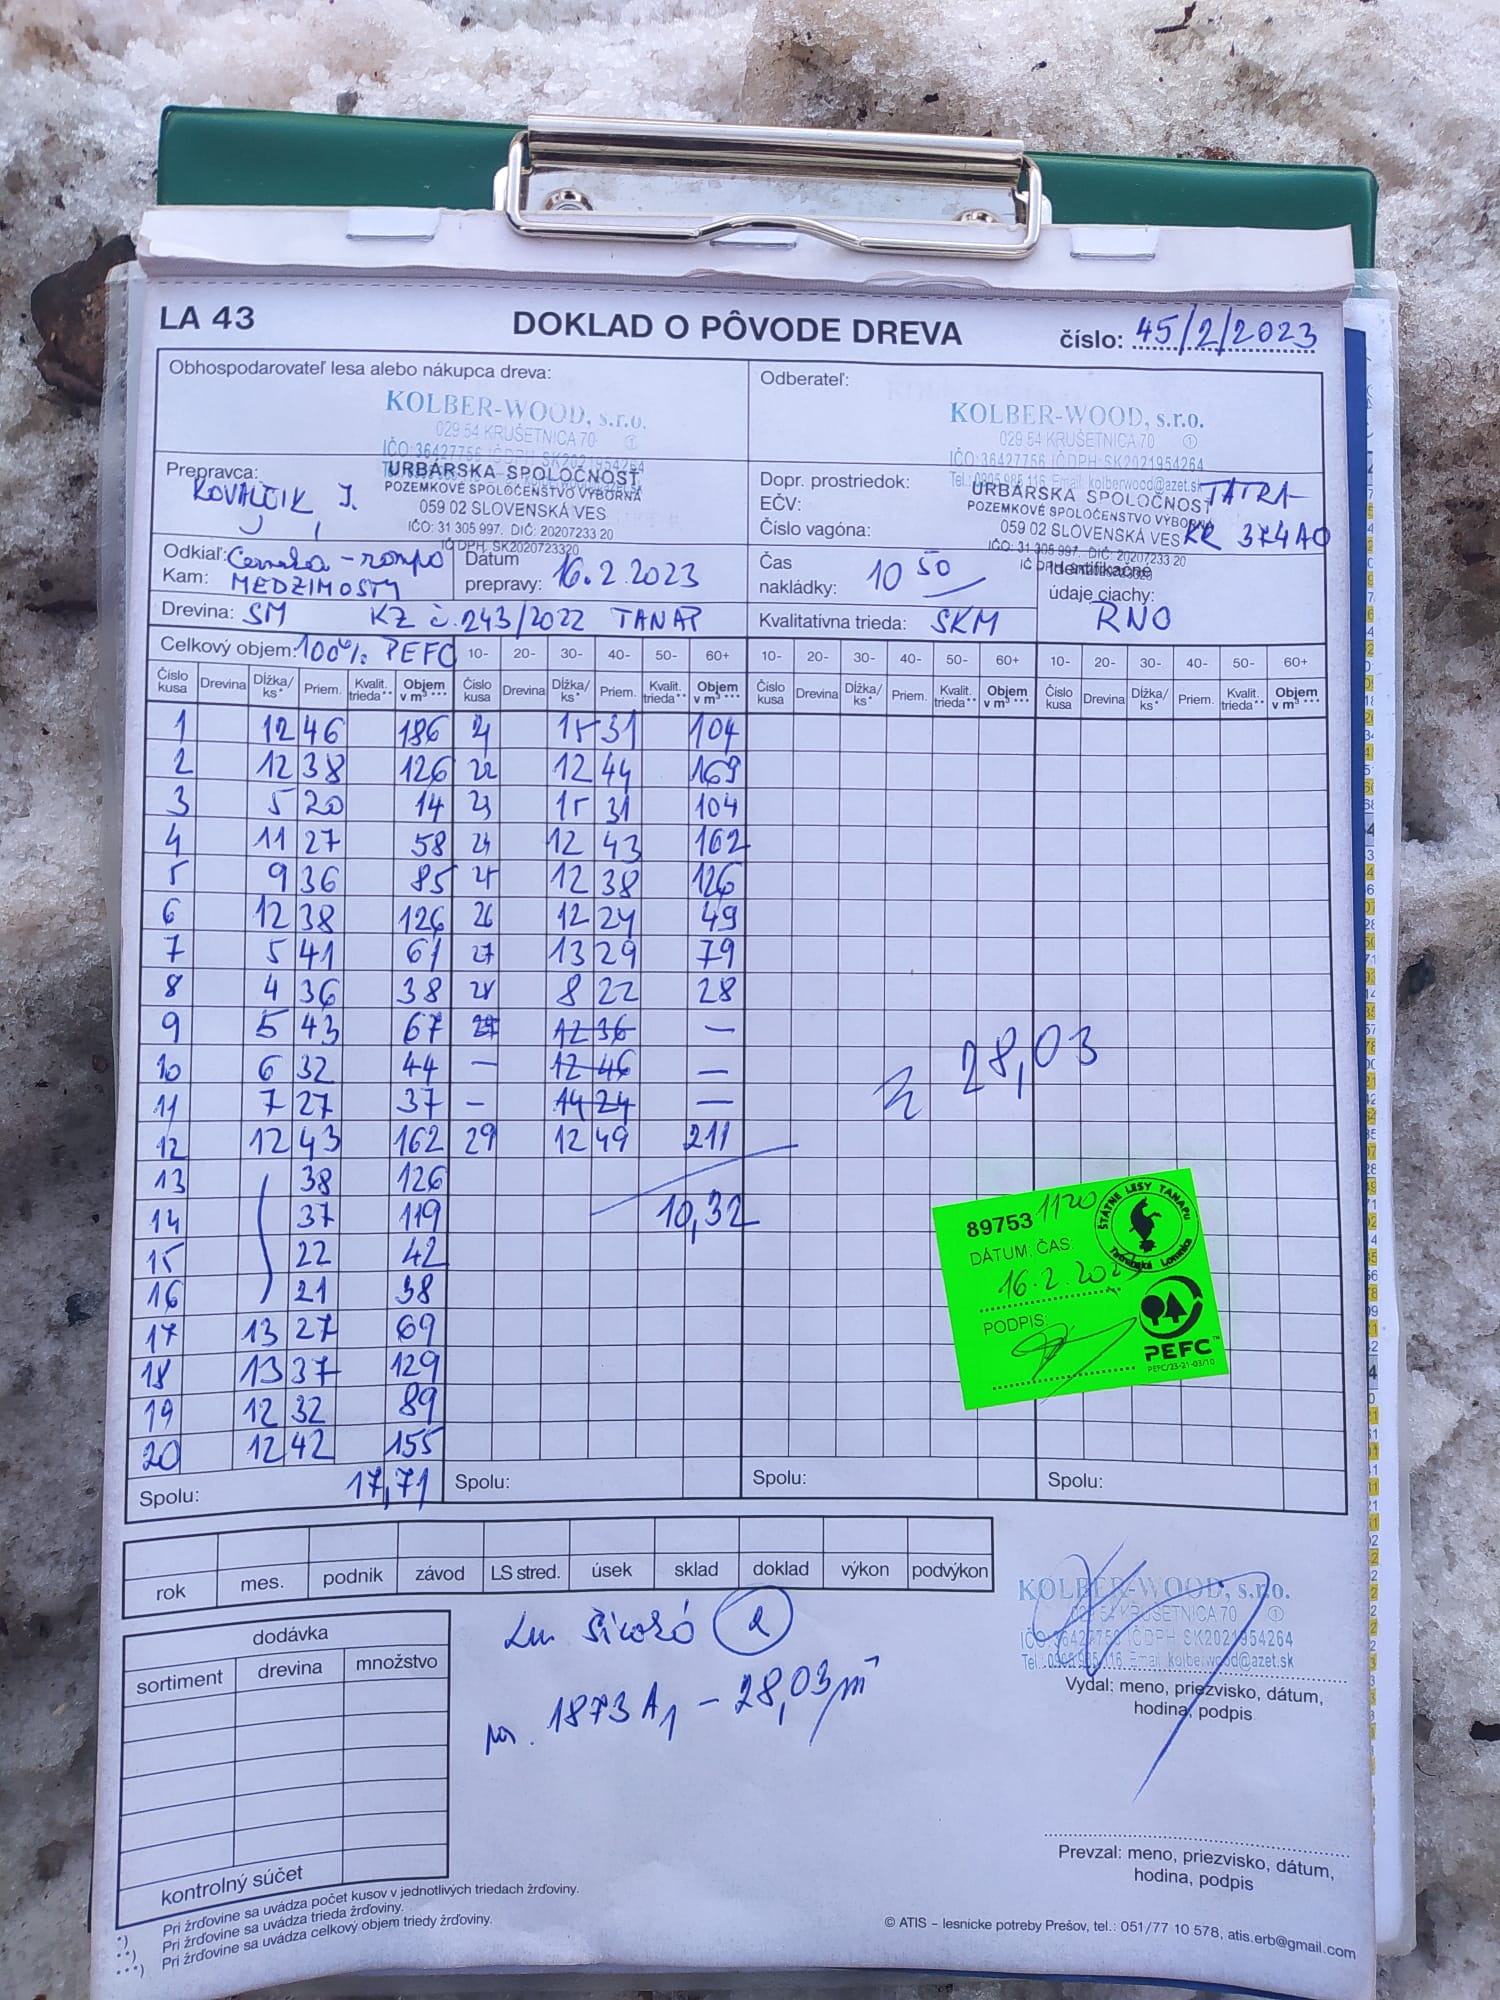 LA 43 DOKLAD O PÔVODE DREVA číslo: 45/2/2023
Obhospodarovateľ lesa alebo nákupca dreva: Odberateľ:
KOLBER-WOOD, s.r.o. KOLBER-WOOD, s.r.o.
029 54 KRUŠETNICA 70 ① 029 54 KRUŠETNICA 70 ①
IČO:36427756 IČDPH:SK2021954264 IČO:36427756 IČDPH:SK2021954264
Tel.:0905 985 116 Email: kolberwood@azet.sk
Prepravca: KOVALČIK J.
URBÁRSKA SPOLOČNOSŤ
POZEMKOVÉ SPOLOČENSTVO VÝBORNÁ
059 02 SLOVENSKÁ VES
IČO: 31 305 997. DIČ: 20207233 20
IČ DPH: SK2020723320
Dopr. prostriedok: TATRA
EČV: KK 374AO
Číslo vagóna:
URBÁRSKA SPOLOČNOSŤ
POZEMKOVÉ SPOLOČENSTVO VÝBORNÁ
059 02 SLOVENSKÁ VES
IČO: 31 305 997. DIČ: 20207233 20
Odkiaľ:
Kam: MEDZIMOSTY
Dátum prepravy: 16.2.2023
Čas nakládky: 10 50
Identifikačné údaje ciachy: RNO
Drevina: SM KZ č.243/2022 TANAP Kvalitatívna trieda: SKM
Celkový objem: 100% PEFC 10- 20- 30- 40- 50- 60+ 10- 20- 30- 40- 50- 60+ 10- 20- 30- 40- 50- 60+
Číslo kusa Drevina Dĺžka/ks* Priem. Kvalit. trieda** Objem v m³*** Číslo kusa Drevina Dĺžka/ks* Priem. Kvalit. trieda** Objem v m³*** Číslo kusa Drevina Dĺžka/ks* Priem. Kvalit. trieda** Objem v m³*** Číslo kusa Drevina Dĺžka/ks* Priem. Kvalit. trieda** Objem v m³***
1 12 46 186 21 15 31 104
2 12 38 126 22 12 44 169
3 5 20 14 23 15 31 104
4 11 27 58 24 12 43 162
5 9 36 85 25 12 38 126
6 12 38 126 26 12 24 49
7 5 41 61 27 13 29 79
8 4 36 38 28 8 22 28
9 5 43 67 29 12 36 —
10 6 32 44 — 12 46 —
11 7 27 37 — 14 24 —
12 12 43 162 29 12 49 211
13 38 126
14 37 119 10,32
15 22 42
16 21 38
17 13 27 69
18 13 37 129
19 12 32 89
20 12 42 155
28,03
89753 1120
DÁTUM, ČAS:
16.2.2023
PODPIS:
ŠTÁTNE LESY TANAPU
Tatranská Lomnica
PEFC™
PEFC/23-21-03/10
Spolu: 17,71 Spolu: Spolu: Spolu:
rok mes. podnik závod LS stred. úsek sklad doklad výkon podvýkon
dodávka
sortiment drevina množstvo
kontrolný súčet
2
1873 A1 – 28,03 m³
KOLBER-WOOD, s.r.o.
029 54 KRUŠETNICA 70 ①
IČO:36427756 IČDPH:SK2021954264
Tel.:0905 985 116 Email: kolberwood@azet.sk
Vydal: meno, priezvisko, dátum,
hodina, podpis
Prevzal: meno, priezvisko, dátum,
hodina, podpis
*) Pri žrďovine sa uvádza počet kusov v jednotlivých triedach žrďoviny.
**) Pri žrďovine sa uvádza trieda žrďoviny.
***) Pri žrďovine sa uvádza celkový objem triedy žrďoviny.
© ATIS – lesnícke potreby Prešov, tel.: 051/77 10 578, atis.erb@gmail.com